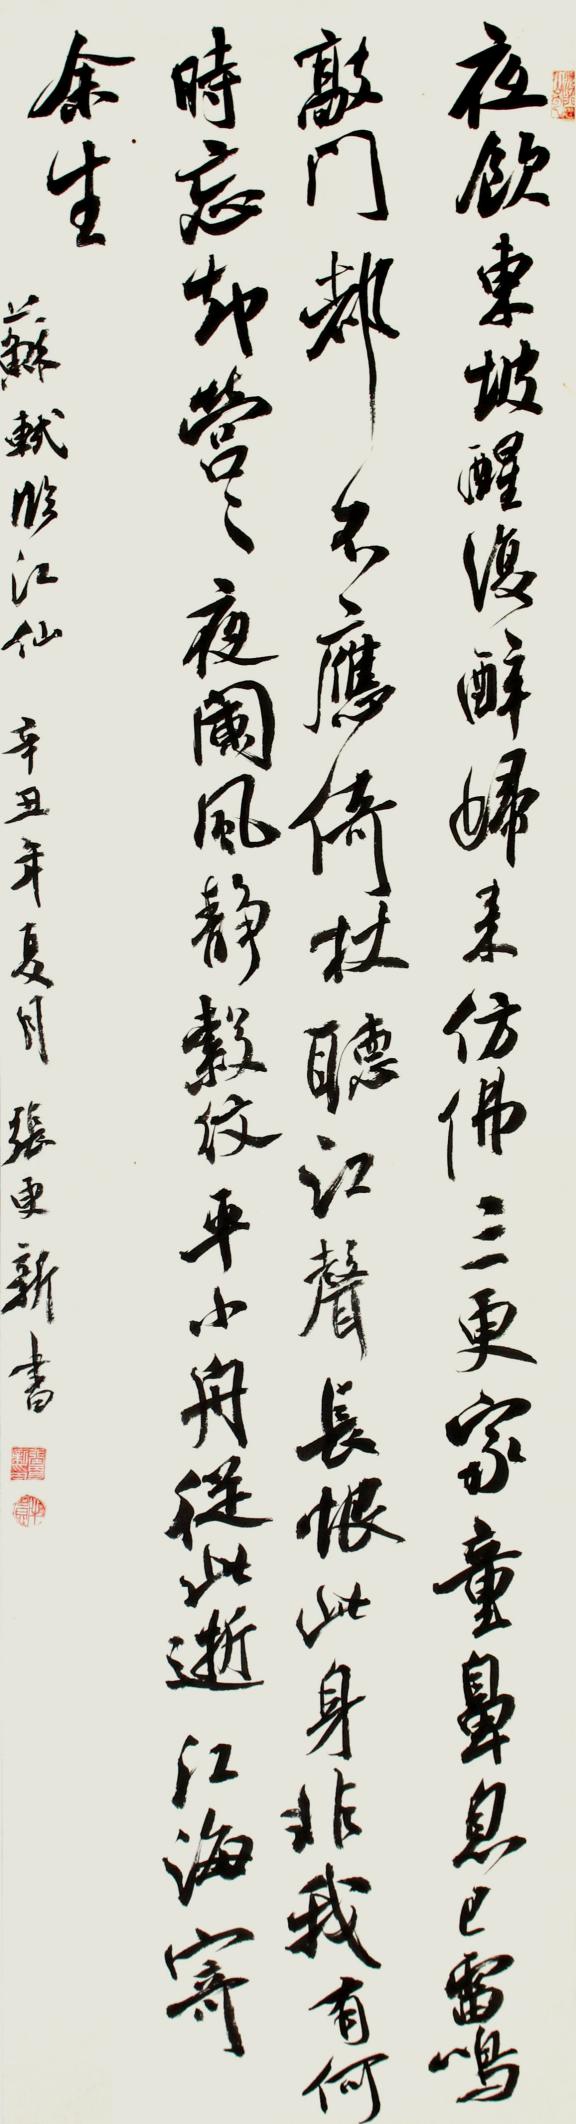 夜飲東坡醒復醉歸来仿佛三更家童鼻息已雷鳴
敲門都不應倚杖聽江聲長恨此身非我有何
時忘却營々夜闌風靜縠纹平小舟從此逝江海寄
余生
蘇軾临江仙 辛丑年夏月 張更新書